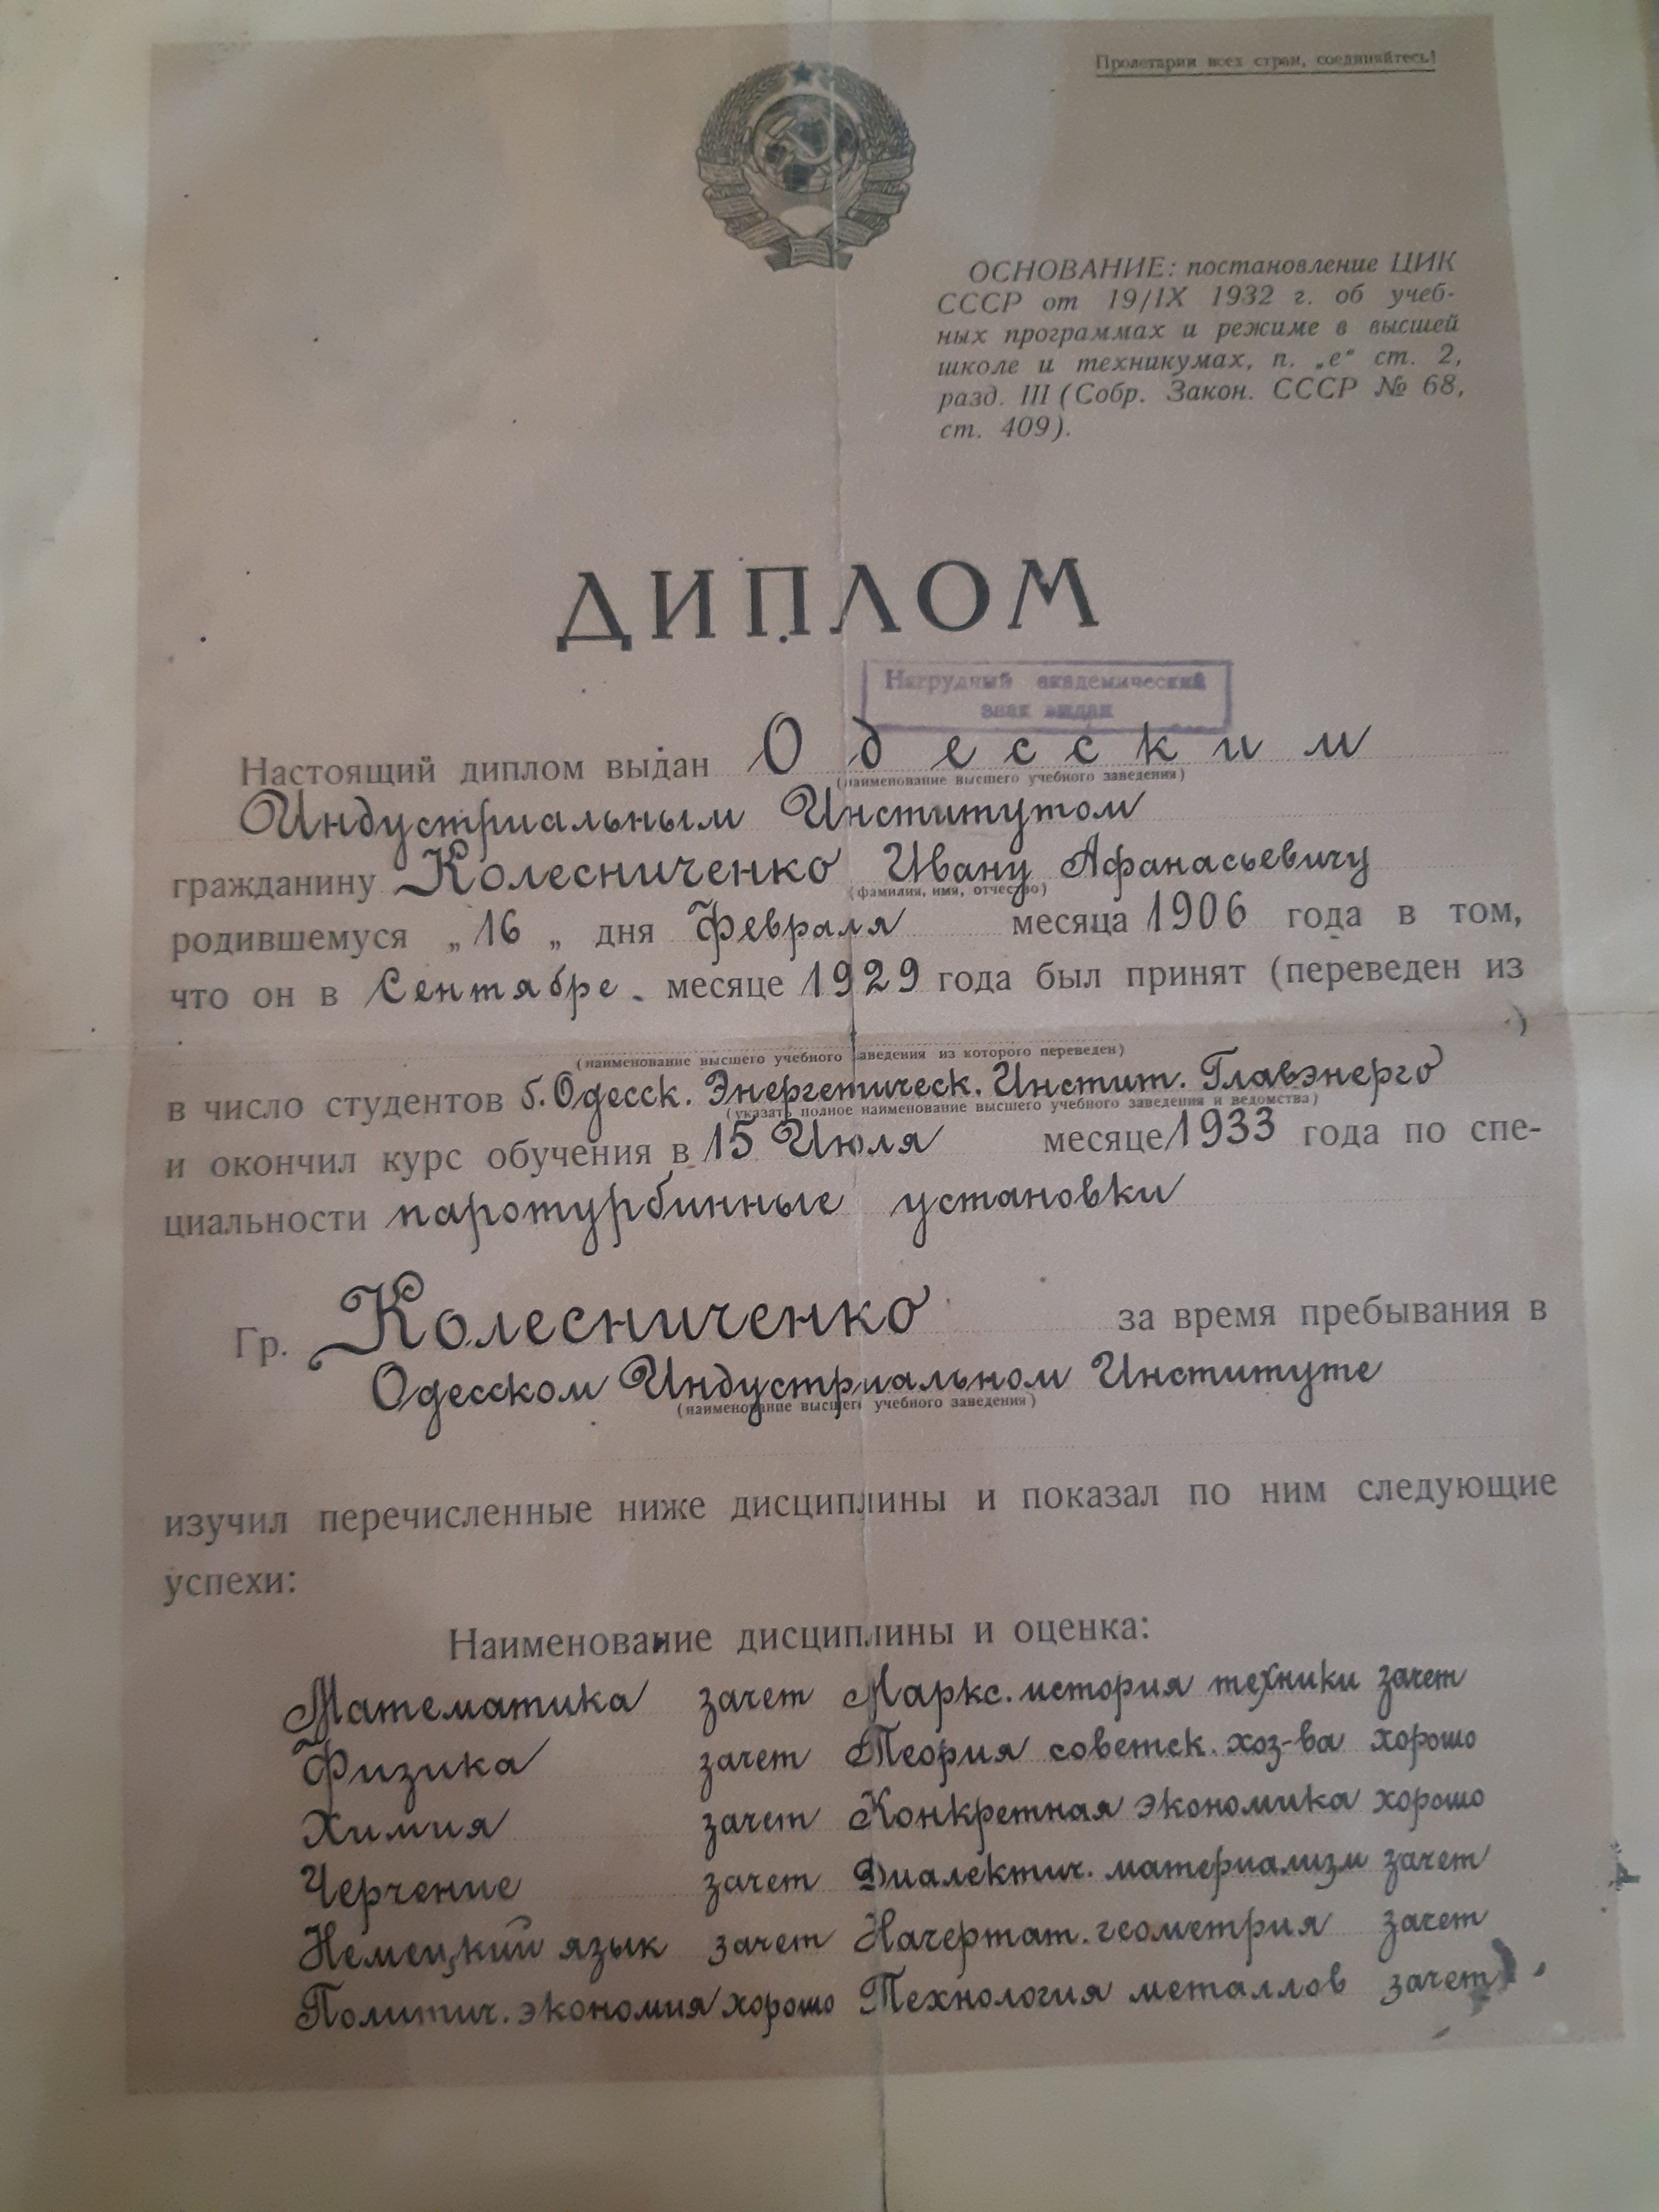 Пролетарии всех стран, соединяйтесь!
ОСНОВАНИЕ: постановление ЦИК
СССР от 19/IX 1932 г. об учеб-
ных программах и режиме в высшей
школе и техникумах, п. „е“ ст. 2,
разд. III (Собр. Закон. СССР № 68,
ст. 409).
ДИПЛОМ
Нагрудный академический
знак выдан
Настоящий диплом выдан Одесским
(наименование высшего учебного заведения)
Индустриальным Институтом
гражданину Колесниченко Ивану Афанасьевичу
(фамилия, имя, отчество)
родившемуся „16„ дня Февраля месяца 1906 года в том,
что он в Сентябре. месяце 1929 года был принят (переведен из
)
(наименование высшего учебного заведения из которого переведен)
в число студентов б. Одесск. Энергетическ. Инстит. Главэнерго
(указать полное наименование высшего учебного заведения и ведомства)
и окончил курс обучения в 15 Июля месяце 1933 года по спе-
циальности паротурбинные установки
Гр. Колесниченко за время пребывания в
Одесском Индустриальном Институте
(наименование высшего учебного заведения)
изучил перечисленные ниже дисциплины и показал по ним следующие
успехи:
Наименование дисциплины и оценка:
Математика зачет Маркс. история техники зачет
Физика зачет Теория советск. хоз-ва хорошо
Химия зачет Конкретная экономика хорошо
Черчение зачет Диалектич. материализм зачет
Немецкий язык зачет Начертат. геометрия зачет
Политич. экономия хорошо Технология металлов зачет